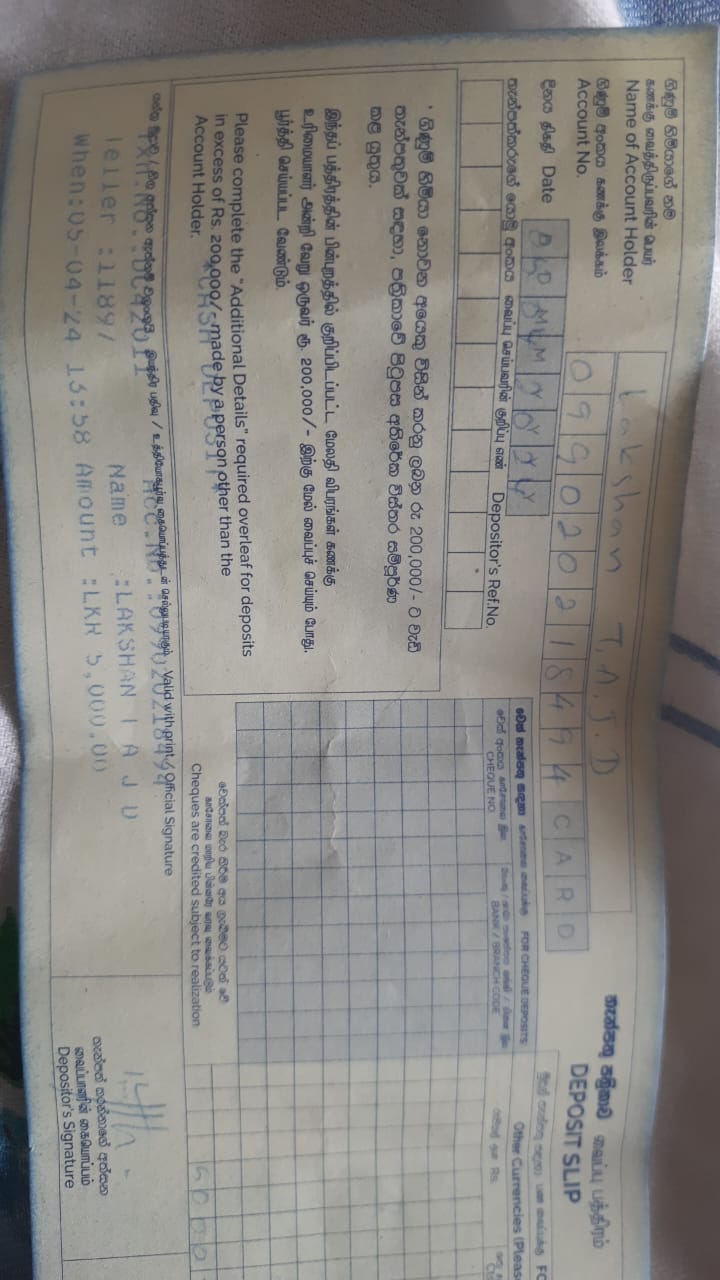 තැන්පතු පත්‍රිකාව வைப்பு பத்திரம்
DEPOSIT SLIP
ගිණුම් හිමියාගේ නම
கணக்கு வைத்திருப்பவரின் பெயர்
Name of Account Holder
Lakshan T.A.J.D
ගිණුම් අංකය கணக்கு இலக்கம்
Account No.
099020218494 CARD
දිනය திகதி Date
D D M M Y Y Y Y
තැන්පත්කරුගේ යොමු අංකය வைப்பு செய்பவரின் குறிப்பு எண் Depositor's Ref.No.
* ගිණුම් හිමියා නොවන අයෙකු විසින් කරනු ලබන රු 200,000/- ට වැඩි
තැන්පතුවක් සඳහා, පත්‍රිකාවේ පිටුපස අතිරේක විස්තර සම්පූර්ණ
කළ යුතුය.
இந்தப் பத்திரத்தின் பின்புறத்தில் குறிப்பிடப்பட்ட மேலதி விபரங்கள் கணக்கு
உரிமையாளர் அன்றி வேறு ஒருவர் ரூ. 200,000/- இற்கு மேல் வைப்புச் செய்யும் போது.
பூர்த்தி செய்யப்பட வேண்டும்.
Please complete the "Additional Details" required overleaf for deposits
in excess of Rs. 200,000/- made by a person other than the
Account Holder.
*CASH DEPOSIT*
FOR CHEQUE DEPOSITS
CHEQUE NO
BANK / BRANCH CODE
Other Currencies (Pleas
Rs.
5000
Cheques are credited subject to realization
Valid with print / Official Signature
Acc.No.:099020218494
Teller :11897 Name :LAKSHAN T A J D
When:05-04-24 13:58 Amount :LKR 5,000.00
තැන්පත් කරන්නාගේ අත්සන
வைப்பாளரின் கையொப்பம்
Depositor's Signature